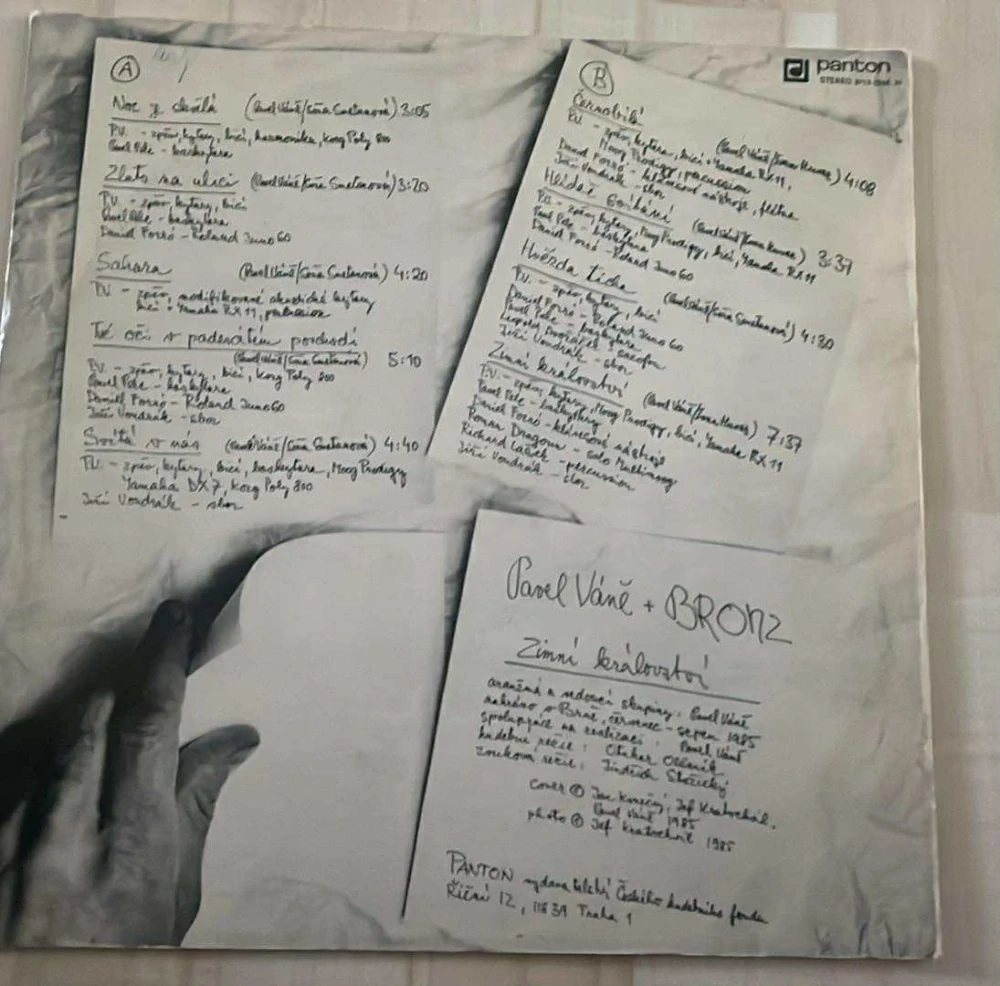 A
Noc z (Pavel Váně/Soňa Smetanová) 3:05
P.V. - zpěv, kytary, bicí, harmonika, Korg Poly 800
Pavel Pele - baskytara
Zlato na ulici (Pavel Váně/Soňa Smetanová) 3:20
P.V. - zpěv, kytary, bicí
Pavel Pele - baskytara
Daniel Forró - Roland Juno 60
Sahara (Pavel Váně/Soňa Smetanová) 4:20
P.V. - zpěv, modifikované akustické kytary
bicí + Yamaha RX 11, percussion
Té oči v padesátém poschodí
(Pavel Váně/Soňa Smetanová) 5:10
P.V. - zpěv, kytary, bicí, Korg Poly 800
Pavel Pele - baskytara
Daniel Forró - Roland Juno 60
Jiří Vondrák - sbor
Svítá v nás (Pavel Váně/Soňa Smetanová) 4:40
P.V. - zpěv, kytary, bicí, baskytara, Moog Prodigy
Yamaha DX7, Korg Poly 800
Jiří Vondrák - sbor
B
panton
STEREO
Černobílá (Pavel Váně/) 4:08
P.V. - zpěv, kytary, bicí + Yamaha RX 11,
Moog Prodigy, percussion
Daniel Forró - klávesové nástroje, flétna
Jiří Vondrák - sbor
Hlídač (Pavel Váně/) 3:37
P.V. - zpěv, kytary, Moog Prodigy, bicí, Yamaha RX 11
Pavel Pele - baskytara
Daniel Forró - Roland Juno 60
Hvězda ticha (Pavel Váně/Soňa Smetanová) 4:30
P.V. - zpěv, kytary, bicí
Daniel Forró - Roland Juno 60
Pavel Pele - baskytara
Leopold Dvořáček - saxofon
Jiří Vondrák - sbor
Zimní království (Pavel Váně/) 7:37
P.V. - zpěv, kytary, Moog Prodigy, bicí, Yamaha RX 11
Pavel Pele - baskytary
Daniel Forró - klávesové nástroje
Roman Dragoun - solo Multimoog
Richard - percussion
Jiří Vondrák - sbor
Pavel Váně + BRONZ
Zimní království
aranžmá a vedoucí skupiny: Pavel Váně
nahráno v Brně, červenec - srpen 1985
spolupráce na realizaci: Pavel Váně
hudební režie:
zvuková režie: Jindřich
cover © Jan Jef Kratochvil,
Pavel Váně 1985
photo © Jef Kratochvil 1985
PANTON vydavatelství Českého hudebního fondu
Říční 12, 118 39 Praha 1